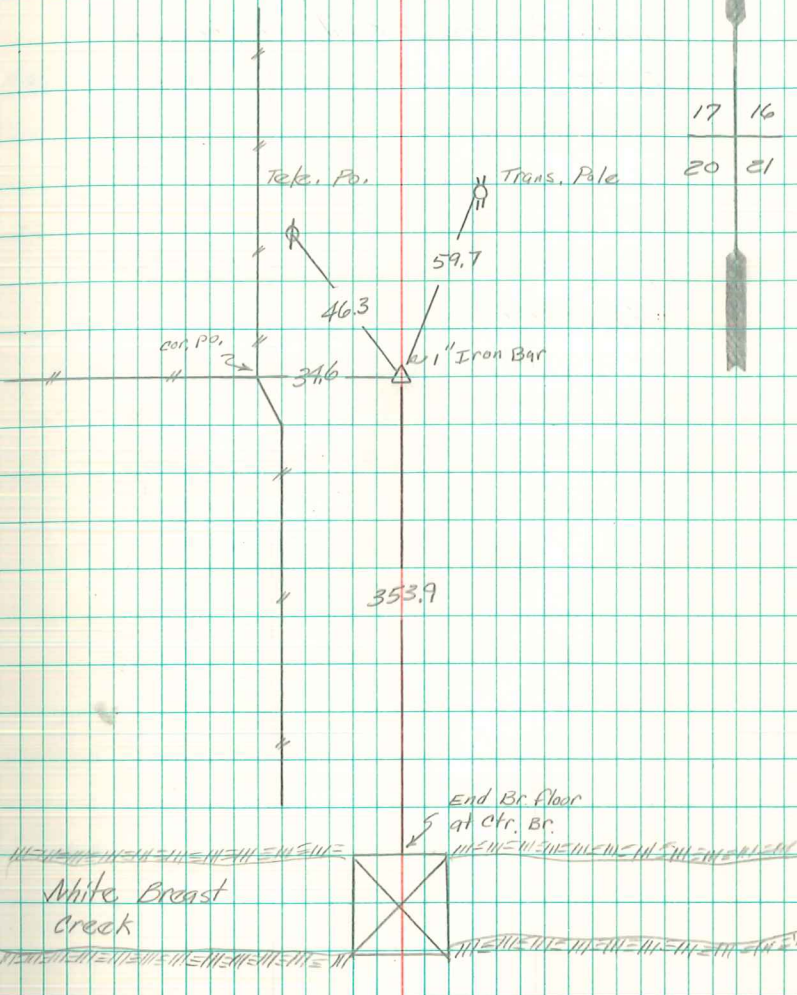 17 16
20 21
Tele. Po.
Trans. Pole
59.7
46.3
cor. po.
1" Iron Bar
34.6
353.9
End Br. floor
at Ctr. Br.
White Breast
Creek